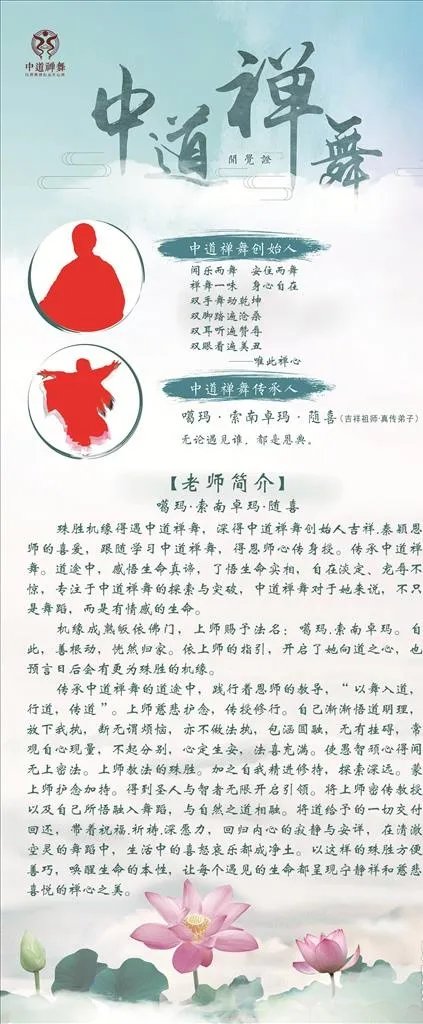 中道禅舞
中道禅舞
開覺證
中道禅舞创始人
闻乐而舞 安住而舞
禅舞一味 身心自在
双手舞动乾坤
双脚踏遍沧桑
双耳听遍赞辱
双眼看遍美丑
——唯此禅心
中道禅舞传承人
噶玛·索南卓玛·随喜（吉祥祖师·真传弟子）
无论遇见谁，都是恩典。
【老师简介】
噶玛·索南卓玛·随喜
珠胜机缘得遇中道禅舞，深得中道禅舞创始人吉祥.秦颖恩
师的喜爱，跟随学习中道禅舞，得恩师心传身授。传承中道禅
舞。道途中，感悟生命真谛，了悟生命实相，自在淡定、宠辱不
惊，专注于中道禅舞的探索与突破，中道禅舞对于她来说，不只
是舞蹈，而是有情感的生命。
机缘成熟皈依佛门，上师赐予法名：噶玛.索南卓玛。自
此，善根动，恍然归家。依上师的指引，开启了她向道之心，也
预言日后会有更为殊胜的机缘。
传承中道禅舞的道途中，践行着恩师的教导，“以舞入道，
行道，传道”。上师慈悲护念，传授修行。自己渐渐悟道明理，
放下我执，断无谓烦恼，亦不做法执，包涵圆融，无有挂碍，常
观自心现量，不起分别，心定生安，法喜充满。使愚智顽心得闻
无上密法。上师教法的殊胜。加之自我精进修持，探索深远。蒙
上师护念加持。得到圣人与智者无限开启引领。将上师密传教授
以及自己所悟融入舞蹈，与自然之道相融。将道给予的一切交付
回还，带着祝福.祈祷.深愿力，回归内心的寂静与安详，在清澈
空灵的舞蹈中，生活中的喜怒哀乐都成净土。以这样的殊胜方便
善巧，唤醒生命的本性，让每个遇见的生命都呈现宁静祥和慈悲
喜悦的禅心之美。